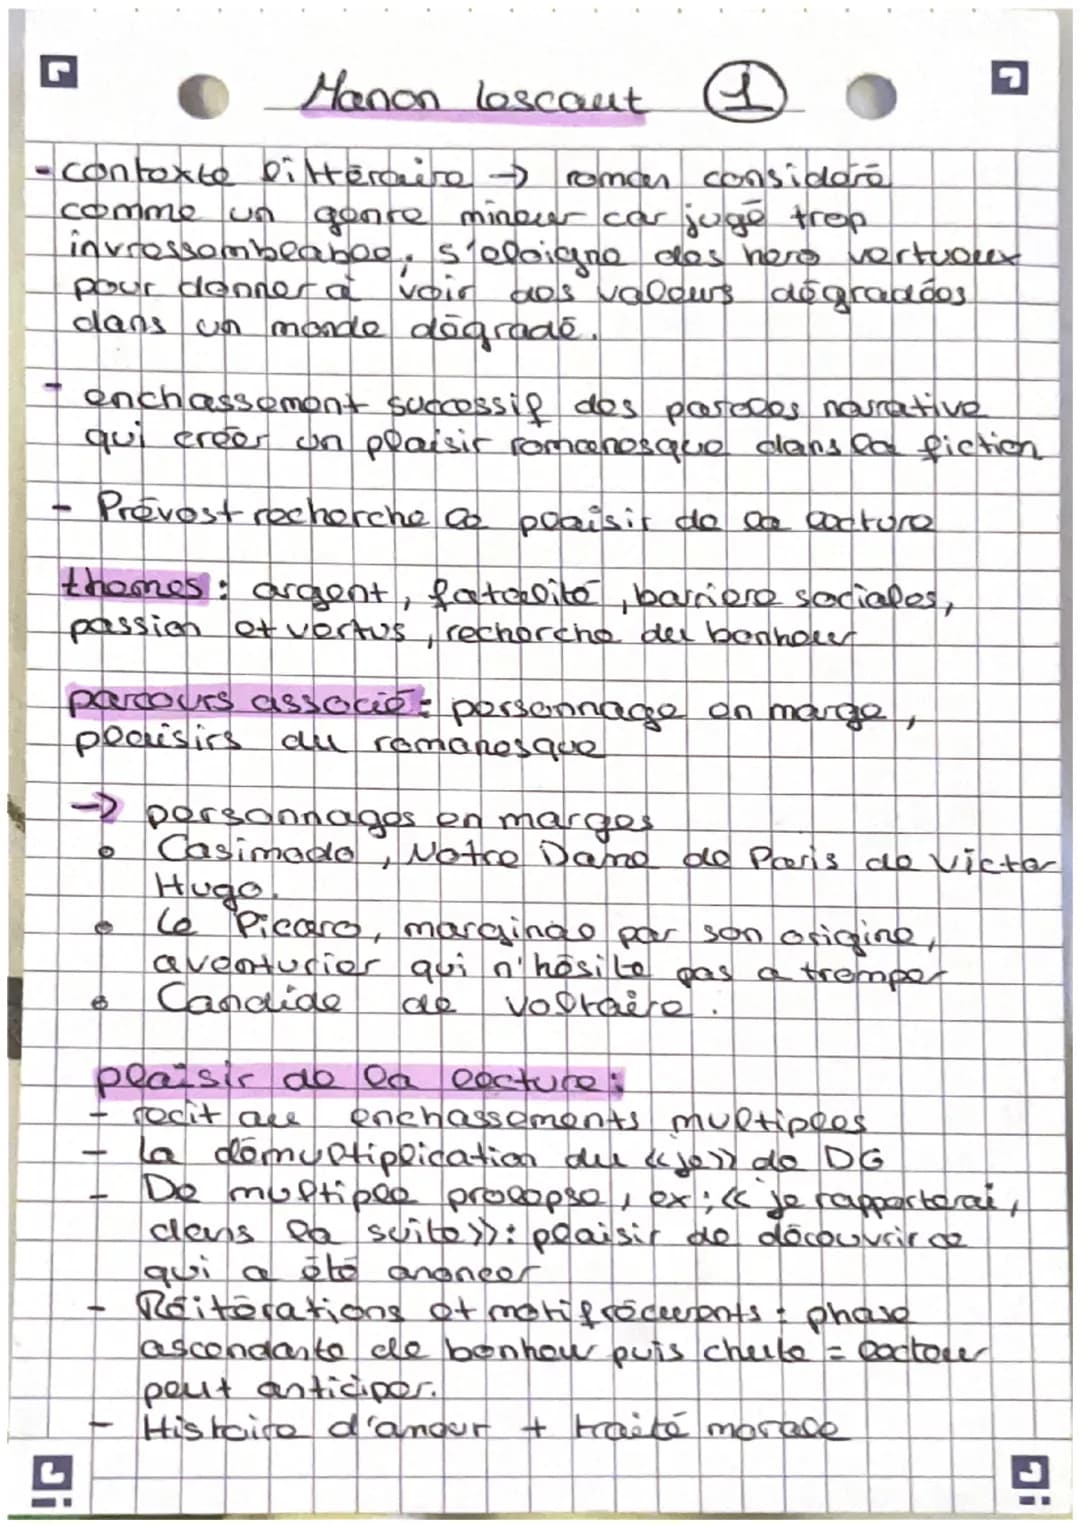 Manon loscaut 1
- contexte littéraire → roman considéré
comme un genre mineur car jugé trop
invressemblable, s'eloigne des hero vertueux
pour donner à voir des valeurs dégradées
dans un monde dégradé.
- enchassement successif des paroles narrative
qui créer un plaisir romanesque dans la fiction
- Prévost recherche le plaisir de la lecture
themes : argent, fatalité, barriere sociales,
passion et vertus, recherche du bonheur
parcours associé : personnage en marge,
plaisirs du romanesque
→ personnages en marges
• Casimodo, Notre Dame de Paris de Victor
Hugo.
• Le Picaro, marginale par son origine,
aventurier qui n'hésite pas a tromper
• Candide de Voltaire.
plaisir de la lecture :
- recit au enchassements multiples
- la démultiplication du «je» de DG
- De multiple prolepse, ex : « je rapporterai,
dans la suite» : plaisir de découvrir ce
qui a été annoncer
- Réitérations et motif récurents : phase
ascendante de bonheur puis chute = lecteur
peut anticiper.
- Histoire d'amour + traité morale